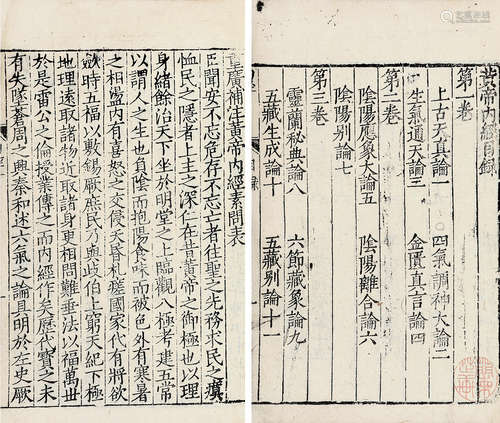 黃帝內經目錄
第一卷
上古天真論一
四氣調神大論二
生氣通天論三
金匱真言論四
第二卷
陰陽應象大論五
陰陽離合論六
陰陽別論七
第三卷
靈蘭秘典論八
六節藏象論九
五藏生成論十
五藏別論十一
重廣補注黃帝內經素問表
臣聞安不忘危存不忘亡者往聖之先務求民之瘼
恤民之隱者上主之深仁在昔黃帝之御極也以理
身緒餘治天下坐於明堂之上臨觀八極考建五常
以謂人之生也負陰而抱陽食味而被色外有寒暑
之相盪內有喜怒之交侵夭昬札瘥國家代有將欲
斂時五福以敷錫厥庶民乃與歧伯上窮天紀下極
地理遠取諸物近取諸身更相問難垂法以福萬世
於是雷公之倫授業傳之而內經作矣歷代寶之未
有失墜蒼周之興秦和述六氣之論具明於左史厥